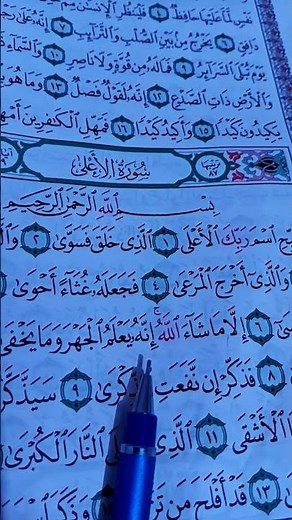 نَفۡسٖ لَّمَّا عَلَيۡهَا حَافِظٞ ٤ فَلۡيَنظُرِ ٱلۡإِنسَٰنُ مِمَّ
دَافِقٖ ٦ يَخۡرُجُ مِنۢ بَيۡنِ ٱلصُّلۡبِ وَٱلتَّرَآئِبِ ٧ إِنَّهُۥ عَلَىٰ رَجۡ
يَوۡمَ تُبۡلَى ٱلسَّرَآئِرُ ٩ فَمَا لَهُۥ مِن قُوَّةٖ وَلَا نَاصِرٖ ١٠ وَٱلسَّمَآءِ ذَا
وَٱلۡأَرۡضِ ذَاتِ ٱلصَّدۡعِ ١٢ إِنَّهُۥ لَقَوۡلٞ فَصۡلٞ ١٣ وَمَا هُوَ بِ
يَكِيدُونَ كَيۡدٗا ١٥ وَأَكِيدُ كَيۡدٗا ١٦ فَمَهِّلِ ٱلۡكَٰفِرِينَ أَمۡهِ
ترتيبها ٨٧ سُورَةُ الأَعۡلَىٰ
بِسۡمِ ٱللَّهِ ٱلرَّحۡمَٰنِ ٱلرَّحِيمِ
ٱسۡمَ رَبِّكَ ٱلۡأَعۡلَى ١ ٱلَّذِي خَلَقَ فَسَوَّىٰ ٢ وَٱلَّ
وَٱلَّذِيٓ أَخۡرَجَ ٱلۡمَرۡعَىٰ ٤ فَجَعَلَهُۥ غُثَآءً أَحۡوَىٰ
٦ إِلَّا مَا شَآءَ ٱللَّهُۚ إِنَّهُۥ يَعۡلَمُ ٱلۡجَهۡرَ وَمَا يَخۡفَىٰ
٨ فَذَكِّرۡ إِن نَّفَعَتِ ٱلذِّكۡرَىٰ ٩ سَيَذَّكَّرُ
ٱلۡأَشۡقَى ١١ ٱلَّذِي ٱلنَّارَ ٱلۡكُبۡرَىٰ
١٣ قَدۡ أَفۡلَحَ مَن تَزَ وَذَكَرَ ٱ